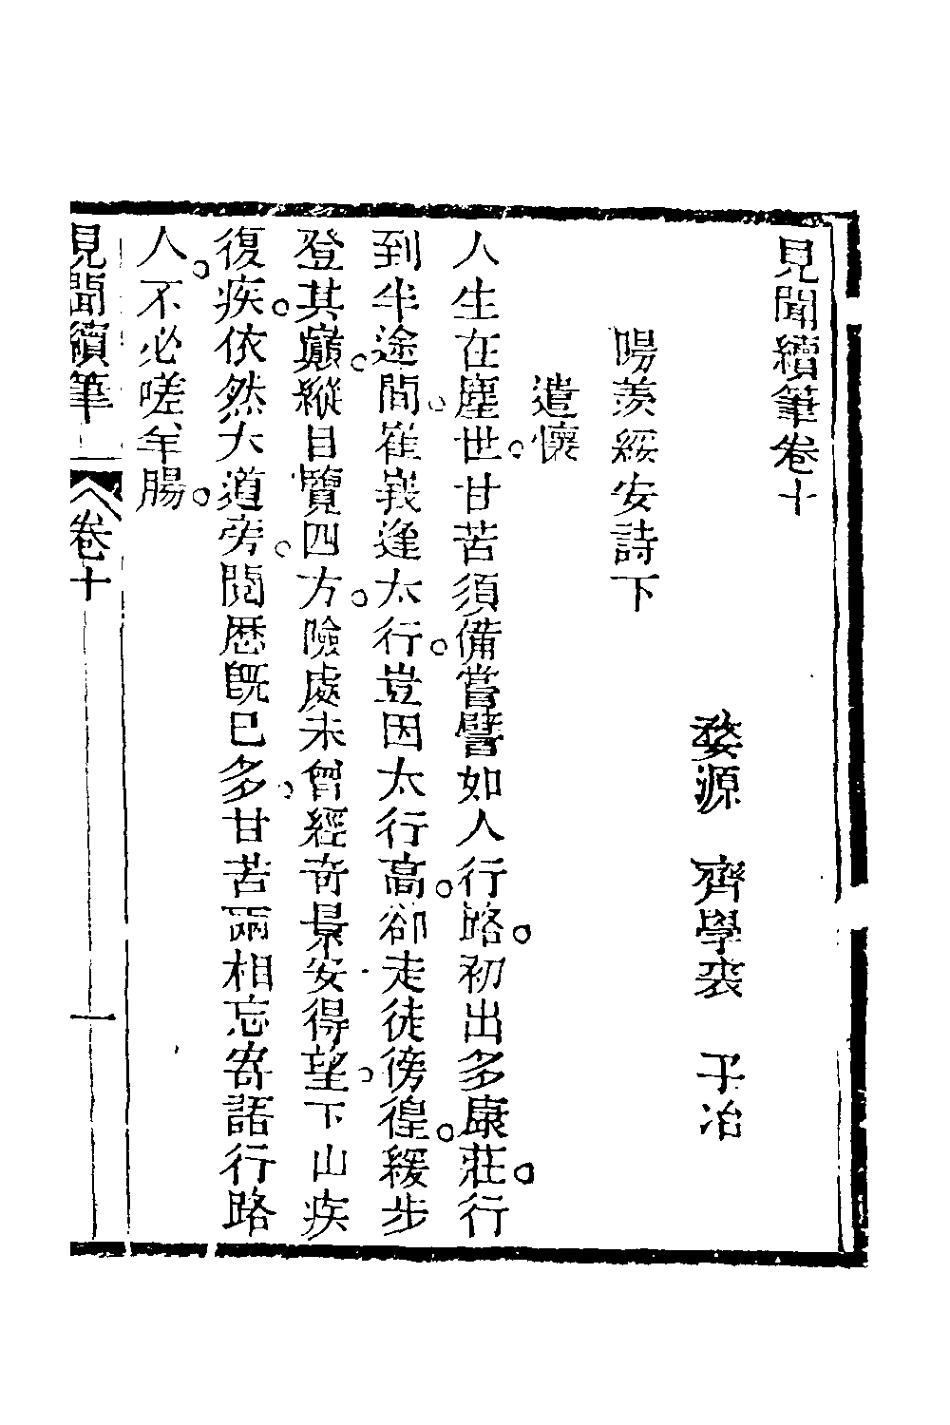 見聞續筆卷十
婺源　齊學裘　子冶
陽羨綏安詩下
遣懷
人生在塵世。甘苦須備嘗譬如人行路。初出多康莊。行
到半途間。崔峩逢太行。豈因太行高。卻走徒徬徨。緩步
登其巔。縱目覽四方。險處未曾經奇景安得望。下山疾
復疾。依然大道旁。閱厯既已多。甘苦兩相忘寄語行路
人。不必嗟羊腸。
見聞續筆　卷十　一